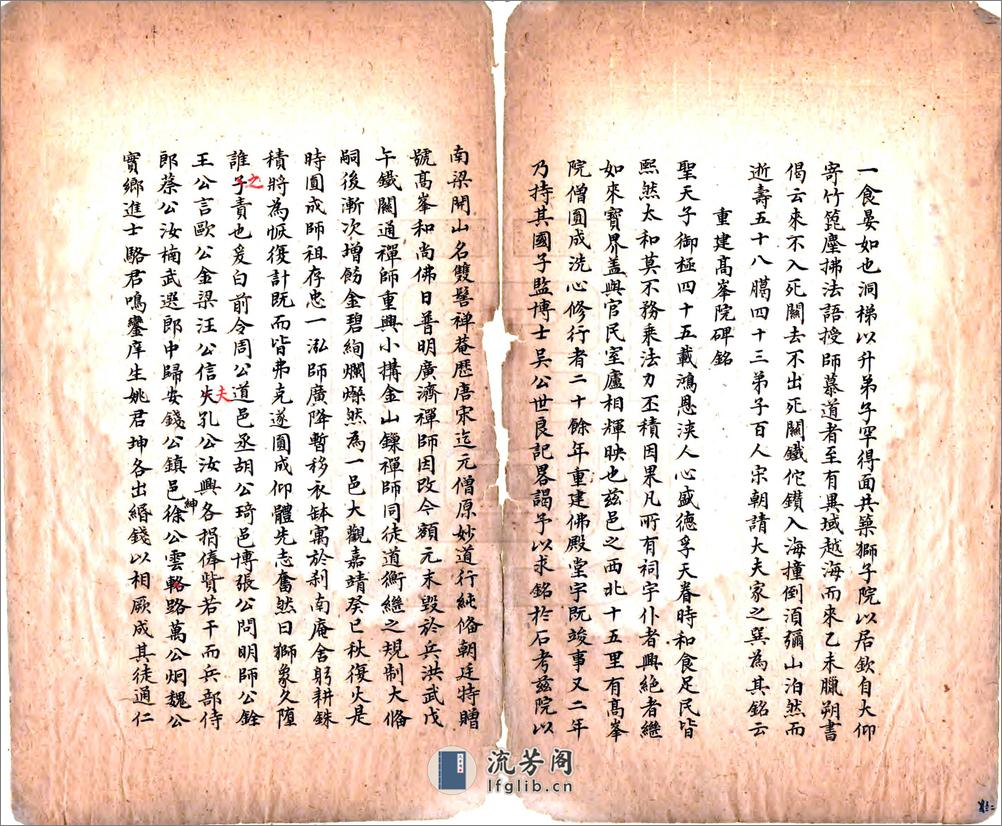 一食晏如也洞梯以升弟子罕得面共築獅子院以居欽自大仰
寄竹篦麈拂法語授師慕道者至有異域越海而來乙未臘朔書
偈云來不入死關去不出死關鐵佗鑽入海撞倒湏彌山泊然而
逝壽五十八臈四十三弟子百人宋朝請大夫家之巽為其銘云
重建髙峯院碑銘
聖天子御極四十五載鴻恩浹人心盛德孚天眷時和食足民皆
熙然太和莫不務乘法力丕積因果凡所有祠宇仆者興絶者継
如來寳界盖與官民室廬相輝映也兹邑之西北十五里有髙峯
院僧圓成洗心修行者二十餘年重建佛殿堂宇既竣事又二年
乃持其國子監博士吴公世良記畧謁予以求銘於石考兹院以
南梁開山名雙髻禅菴歴唐宋迄元僧原妙道行純俻朝廷特贈
號髙峯和尚佛日普明廣濟禪師因改今額元末毀於兵洪武戊
午鐵關通禪師重興小搆金山鏁禪師同徒道衡継之規制大俻
嗣後漸次増餙金碧絢爛爍然為一邑大觀嘉靖癸巳秋復火是
時圓成師祖存忠一泓師廣隆暫移衣缽寓於刹南庵舍躬耕銖
積將為恢復計既而皆弗克遂圓成仰體先志奮然曰獅象久墮
誰子之責也爰白前令周公道邑丞胡公琦邑博張公問明師公銓
王公言歐公金梁汪公信夫夫孔公汝興各捐俸貲若干而兵部侍
郎蔡公汝楠武選郎中歸安錢公鎮邑徐公雲紳輅路萬公炯魏公
實鄉進士駱君鳴鑾庠生姚君坤各出緡錢以相厥成其徒通仁
流芳阁
lfglib.cn